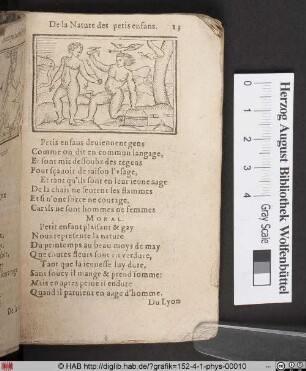 De la Nature des petis enfans. 23
Petis enfans deuiennent gens
Comme on dit en commun langage,
Et sont mis dessoubs des regens
Pour sçauoir de raison l'vsage,
Et tant qu'ils sont en leur ieune aage
De la chair ne sentent les flammes
Et si n'ont force ne courage,
Car ils ne sont hommes ne femmes
MORAL.
Petit enfant plaisant & gay
Nous represente la nature
Du printemps au beau moys de may
Que toutes fleurs sont en verdure,
Tant que sa ieunesse luy dure,
Sans soucy il mange & prend somme:
Mais en apres peine il endure
Quand il paruient en aage d'homme.
Du Lyon
Herzog August Bibliothek Wolfenbüttel
Gray Scale
0 1 2 3 4
© HAB http://diglib.hab.de/?grafik=152-4-1-phys-00010